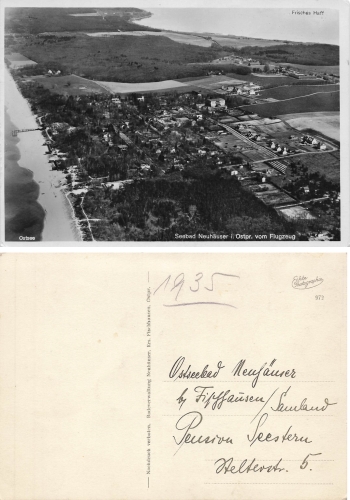 Frisches Haff
Ostsee
Seebad Neuhäuser i. Ostpr. vom Flugzeug
1935
Echte Photographie
973
Nachdruck verboten. Badeverwaltung Neuhäuser, Krs. Fischhausen, Ostpr.
Ostseebad Neuhäuser
by Fischhausen/Samland
Pension Seestern
Stelterstr. 5.